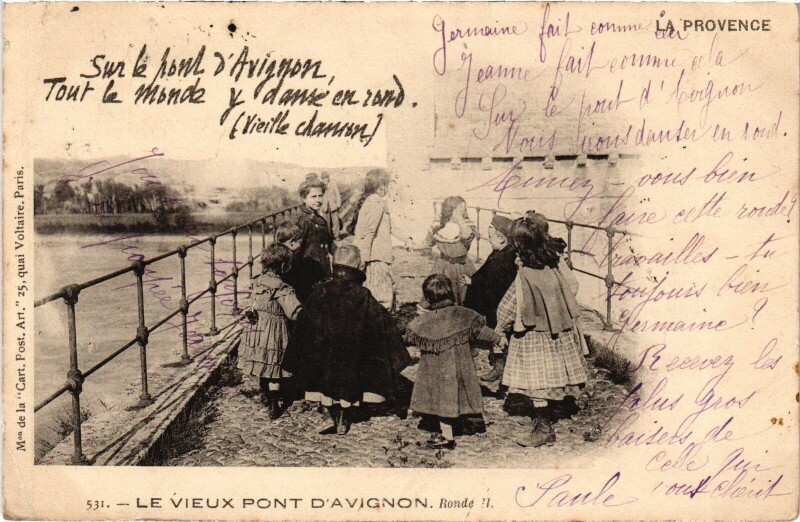 LA PROVENCE
Sur le pont d'Avignon,
Tout le monde y danse en rond.
(Vieille chanson)
Germaine fait comme ci
Jeanne fait comme cela
Sur le pont d'Avignon
Nous irons danser en rond.
Aimez-vous bien
faire cette ronde?
Travailles-tu
toujours bien
Germaine?
Recevez les
plus gros
baisers de
celle qui
vous chérit
Paule
Mon de la "Cart. Post. Art." 25, quai Voltaire. Paris.
531. — LE VIEUX PONT D'AVIGNON. Ronde II.